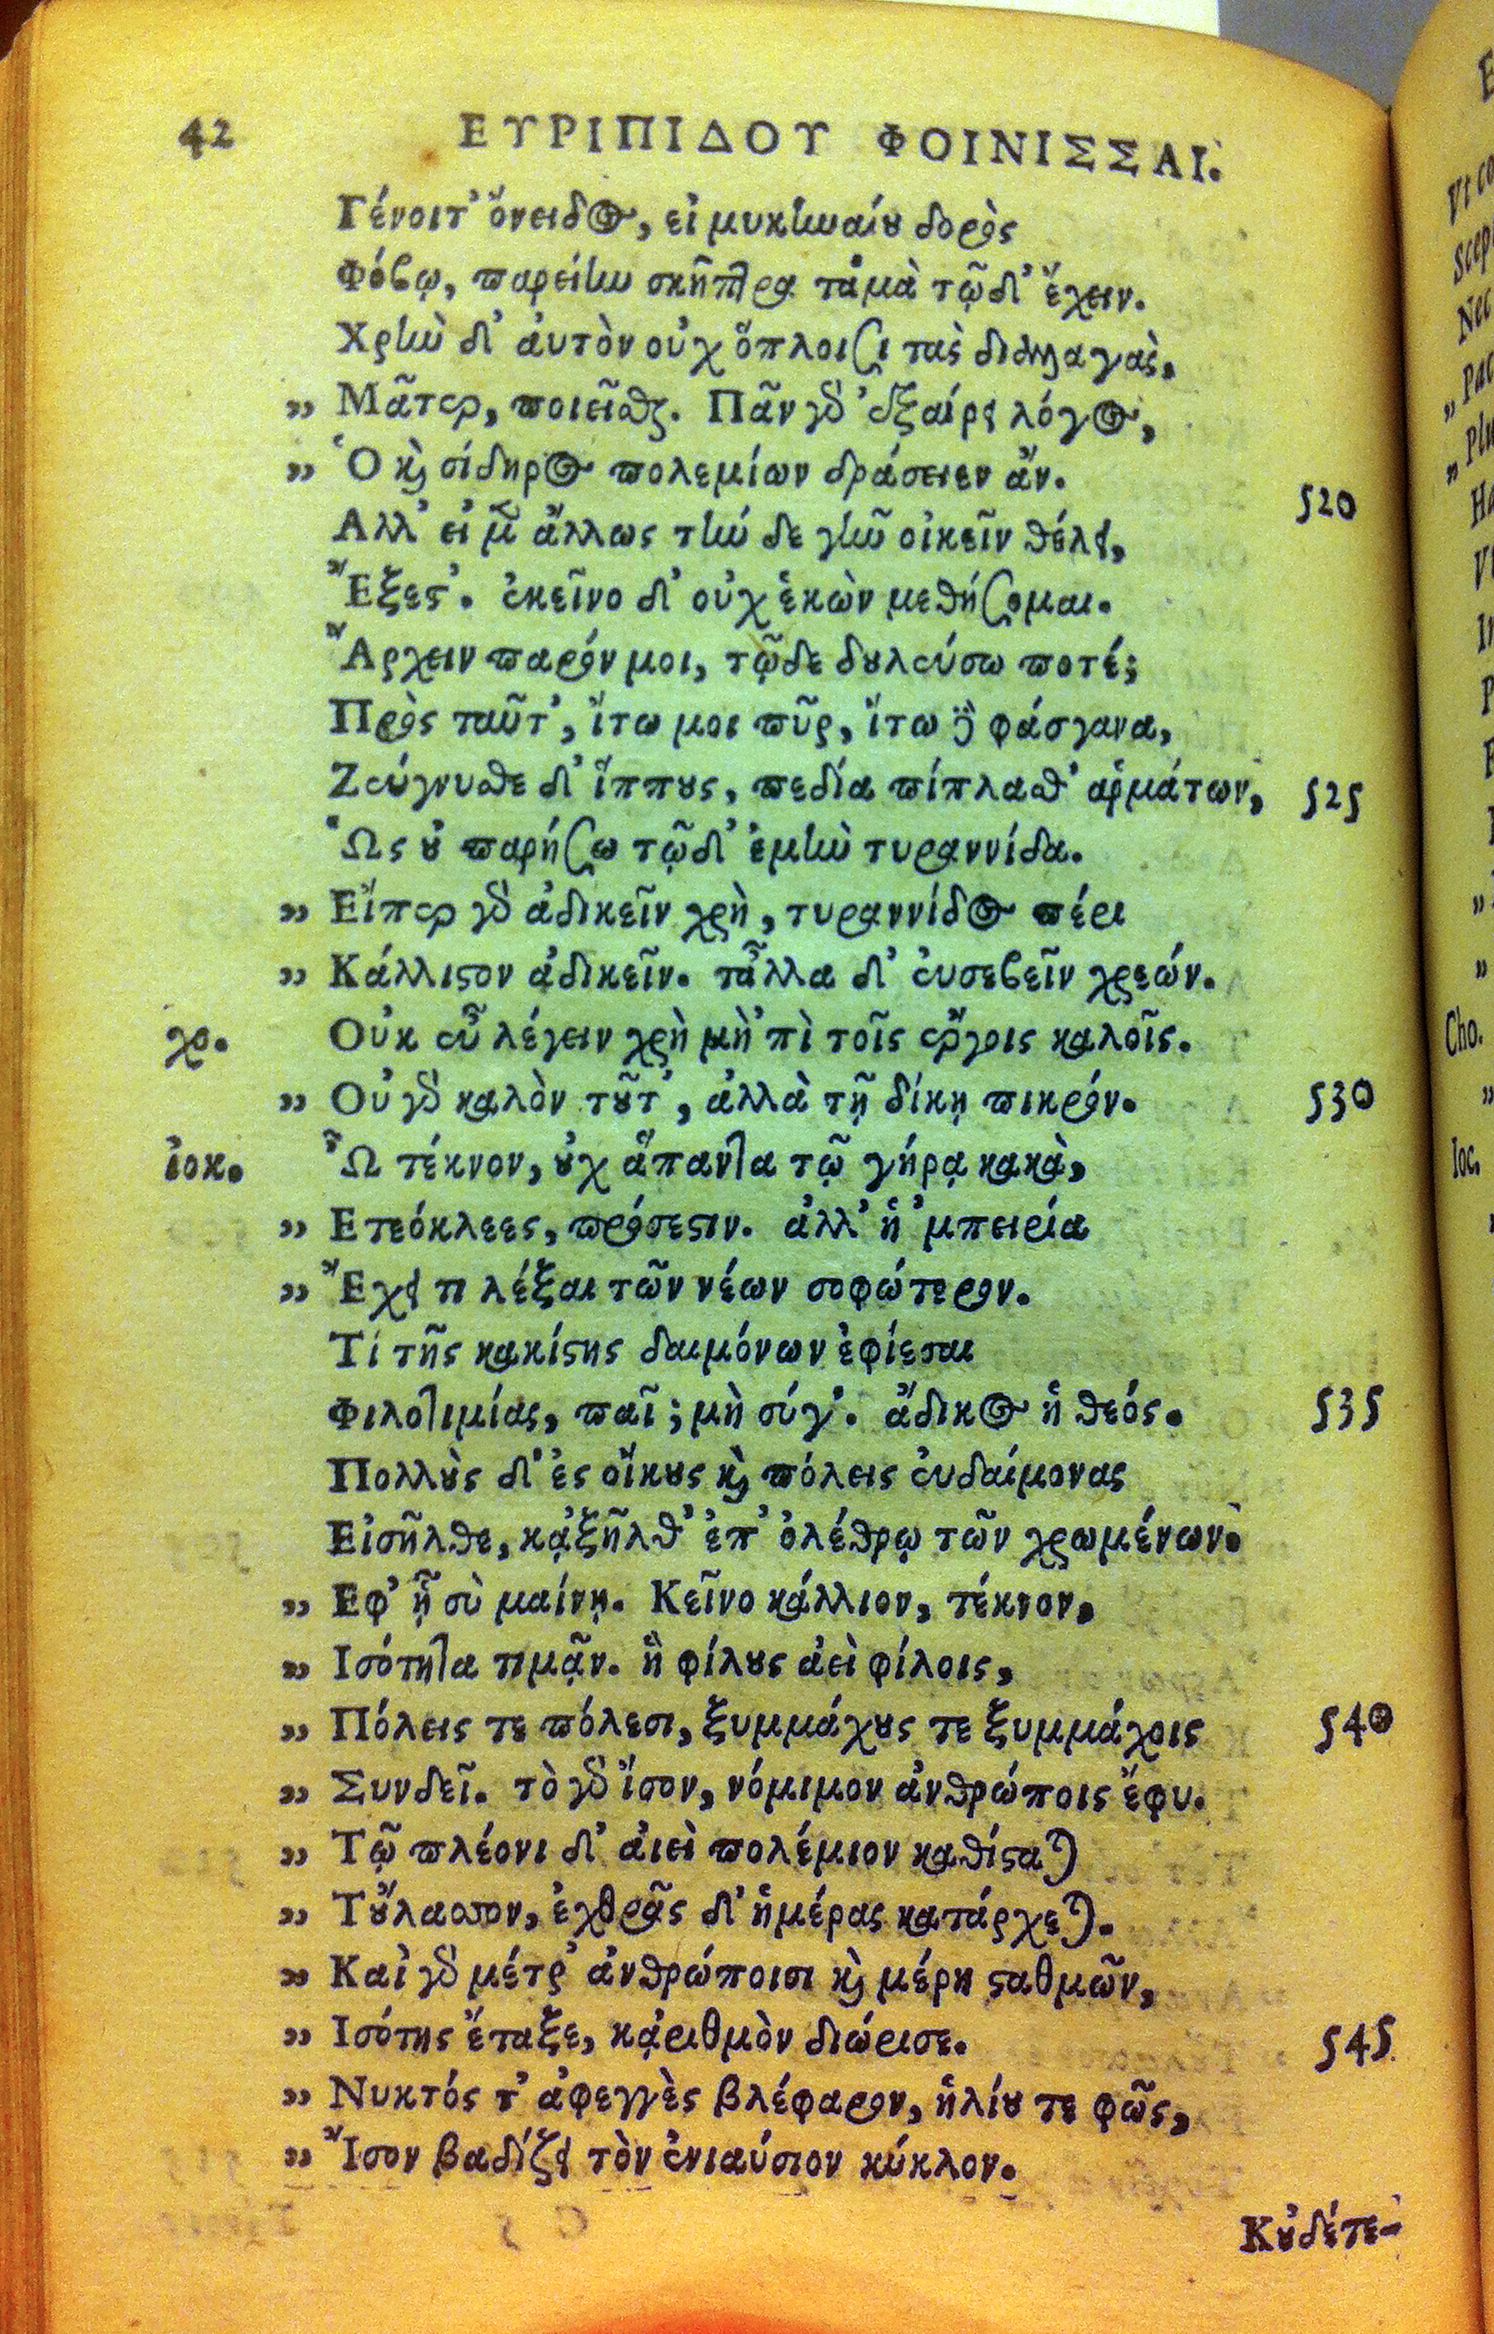 42 ΕΥΡΙΠΙΔΟΥ ΦΟΙΝΙΣΣΑΙ.
Γένοιτ' ὄνειδος, εἰ μυκηναίου δορὸς
Φόβῳ, παρείην σκῆπτρα τἀμὰ τῷδ' ἔχειν.
Χρὴν δ' ἀυτὸν οὐχ ὅπλοισι τὰς διαλλαγὰς,
„ Μᾶτερ, ποιεῖσθαι. Πᾶν γὰρ ἐξαίρει λόγος,
„ Ὁ καὶ σίδηρος πολεμίων δράσειεν ἄν. 520
Αλλ' εἰ μὲν ἄλλως τήνδε γῆν οἰκεῖν θέλει,
Ἔξεστ'. ἐκεῖνο δ' οὐχ ἑκὼν μεθήσομαι.
Ἄρχειν παρόν μοι, τῷδε δουλεύσω ποτέ;
Πρὸς ταῦτ', ἴτω μοι πῦρ, ἴτω δὲ φάσγανα,
Ζεύγνυσθε δ' ἵππους, πεδία πίπλασθ' ἁρμάτων, 525
Ὡς οὐ παρήσω τῷδ' ἐμὴν τυραννίδα.
„ Εἴπερ γὰρ ἀδικεῖν χρὴ, τυραννίδος πέρι
„ Κάλλιστον ἀδικεῖν. τἄλλα δ' ἐυσεβεῖν χρεών.
χο. Οὐκ εὖ λέγειν χρὴ μὴ 'πὶ τοῖς ἔργοις καλοῖς.
„ Οὐ γὰρ καλὸν τοῦτ', ἀλλὰ τῇ δίκῃ πικρόν. 530
ἰοκ. Ὦ τέκνον, οὐχ ἅπαντα τῷ γήρᾳ κακὰ,
„ Ετεόκλεες, πρόσεστιν. ἀλλ' ἡ 'μπειρία
„ Ἔχει τι λέξαι τῶν νέων σοφώτερον.
Τί τῆς κακίστης δαιμόνων ἐφίεσαι
Φιλοτιμίας, παῖ; μὴ σύγ'. ἄδικος ἡ θεός. 535
Πολλοὺς δ' ἐς οἴκους καὶ πόλεις ἐυδαίμονας
Εἰσῆλθε, κᾀξῆλθ' ἐπ' ὀλέθρῳ τῶν χρωμένων.
„ Εφ' ᾗ σὺ μαίνῃ. Κεῖνο κάλλιον, τέκνον,
„ Ισότητα τιμᾷν. ἣ φίλους ἀεὶ φίλοις,
„ Πόλεις τε πόλεσι, ξυμμάχους τε ξυμμάχοις 540
„ Συνδεῖ. τὸ γὰρ ἴσον, νόμιμον ἀνθρώποις ἔφυ.
„ Τῷ πλέονι δ' ἀιεὶ πολέμιον καθίσταται
„ Τοὔλασσον, ἐχθρᾶς δ' ἡμέρας κατάρχεται.
„ Καὶ γὰρ μέτρ' ἀνθρώποισι καὶ μέρη σταθμῶν,
„ Ισότης ἔταξε, κᾀριθμὸν διώρισε. 545
„ Νυκτός τ' ἀφεγγὲς βλέφαρον, ἡλίου τε φῶς,
„ Ἴσον βαδίζει τὸν ἐνιαύσιον κύκλον.
Κοὐδέτε-